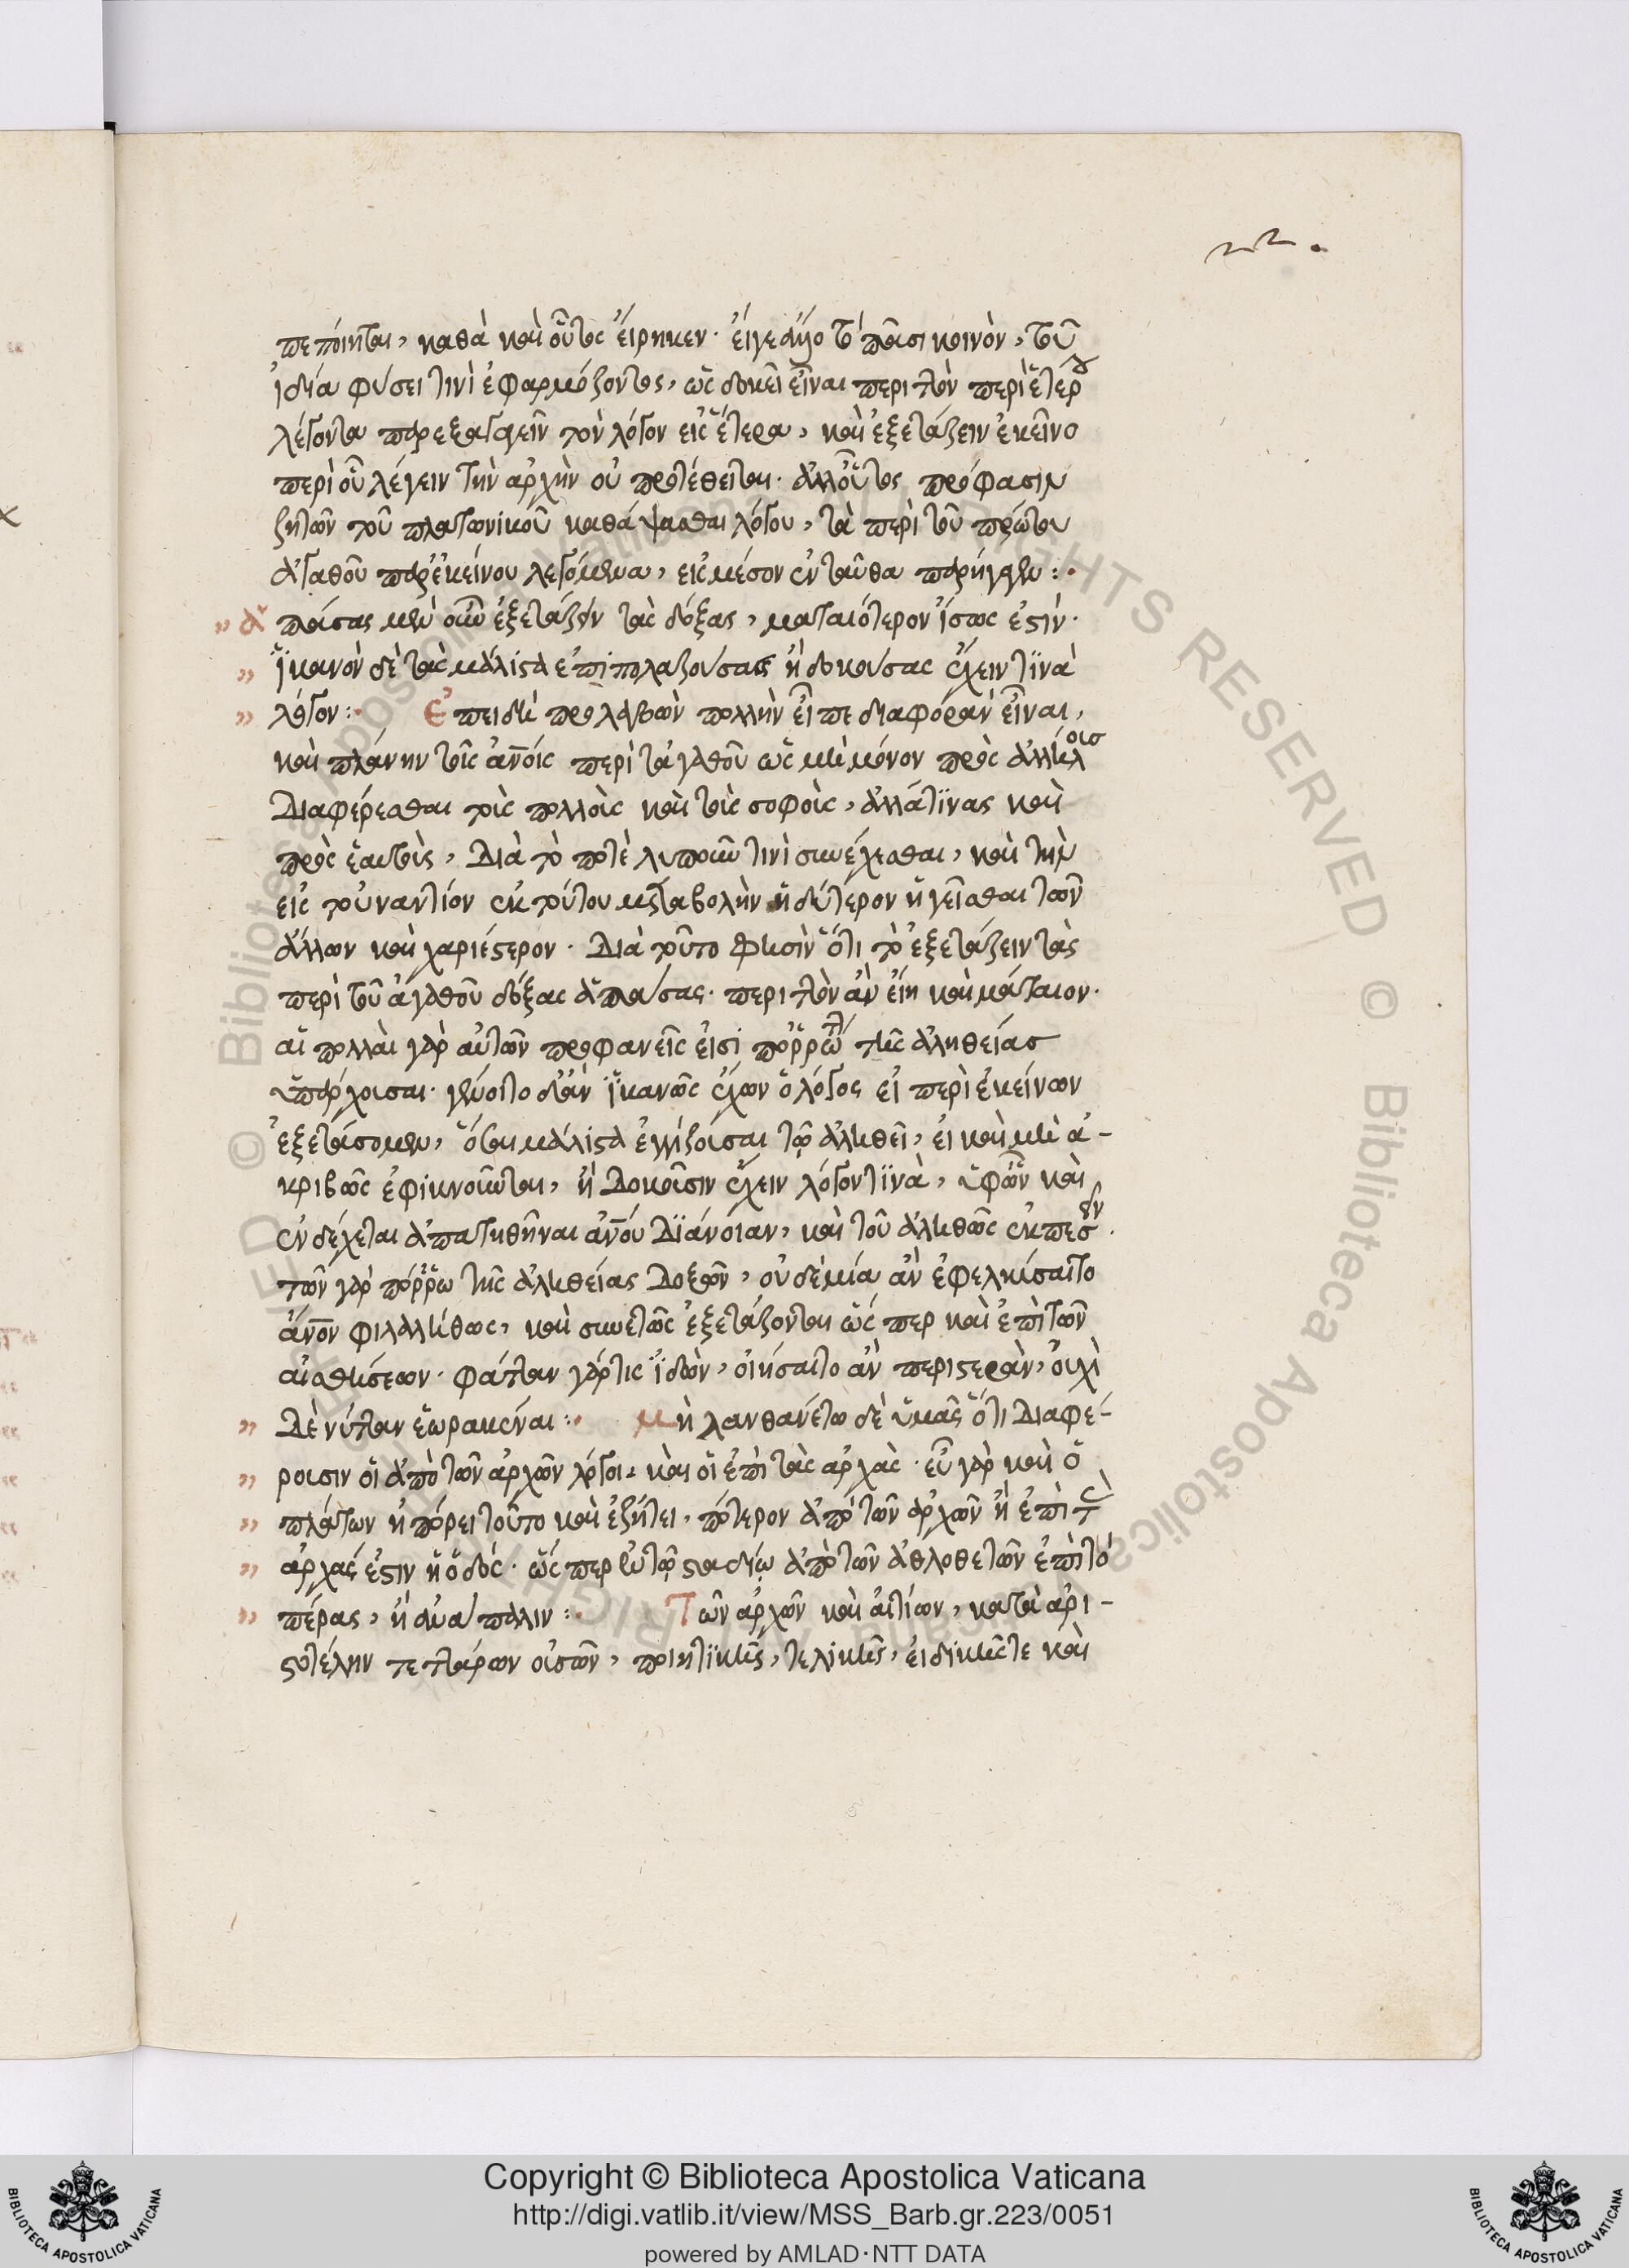 22.
πεποίηται, καθὰ καὶ οὗτος εἴρηκεν. εἴγε δι' ὃ τὸ πᾶσι κοινὸν, τοῦ
ἰδίᾳ φύσει τινὶ ἐφαρμόζοντος, ὡς δοκεῖ εἶναι περιττὸν περὶ ἑτέρου
λέγοντα παρεξαγαγεῖν τὸν λόγον εἰς ἕτερα, καὶ ἐξετάζειν ἐκεῖνο
περὶ οὗ λέγειν τὴν ἀρχὴν οὐ προτέθειται. ἀλλ' οὗτος πρόφασιν
ζητῶν τοῦ πλατωνικοῦ καθάψασθαι λόγου, τὰ περὶ τοῦ πρώτου
ἀγαθοῦ παρ' ἐκείνου λεγόμενα, εἰς μέσον ἐνταῦθα παρήγαγεν :·
" ἁπάσας μὲν οὖν ἐξετάζειν τὰς δόξας, ματαιότερον ἴσως ἐστίν.
" ἱκανὸν δὲ τὰς μάλιστα ἐπιπολαζούσας ἢ δοκούσας ἔχειν τινὰ
" λόγον :· Ἐπειδὴ προλαβὼν πολλὴν εἶπε διαφορὰν εἶναι,
καὶ πλάνην τοῖς ἀνοις περὶ τἀγαθοῦ ὡς μὴ μόνον πρὸς ἀλλήλοις
διαφέρεσθαι τοὶς πολλοὶς καὶ τοὶς σοφοὶς, ἀλλά τινας καὶ
πρὸς ἑαυτοὺς, διὰ τὸ ποτὲ λυποῦν τινὶ συνέχεσθαι, καὶ τὴν
εἰς τοὐναντίον ἐκ τούτου μεταβολὴν ἡδύτερον ἡγεῖσθαι τῶν
ἄλλων καὶ χαριέστερον. Διὰ τοῦτο φησὶν ὅτι τὸ ἐξετάζειν τὰς
περὶ τοῦ ἀγαθοῦ δόξας ἁπάσας. περιττὸν ἂν εἴη καὶ μάταιον.
αἱ πολλαὶ γὰρ αὐτῶν προφανεῖς εἰσὶ πόρρω τῆς ἀληθείας
ὑπάρχουσαι. γένοιτο δ' ἂν ἱκανῶς ἔχων ὁ λόγος εἰ περὶ ἐκείνων
ἐξετάσομεν, ὅσαι μάλιστα ἐγγίζουσαι τῷ ἀληθεῖ, εἰ καὶ μὴ ἀ-
κριβῶς ἐφικνοῦνται, ἢ δοκοῦσιν ἔχειν λόγον τινὰ, ὑφ' ὧν καὶ
ἐνδέχεται ἀπατηθῆναι ἀνου διάνοιαν, καὶ τοῦ ἀληθῶς ἐκπεσεῖν.
τῶν γὰρ πόρρω τῆς ἀληθείας δοξῶν, οὐδεμία ἂν ἐφελκύσαιτο
ἄνον φιλαλήθως, καὶ συνετῶς ἐξετάζοντα ὥσπερ καὶ ἐπὶ τῶν
αἰσθήσεων. φάτταν γάρ τις ἰδὼν, οἰήσαιτο ἂν περιστερὰν, οὐχὶ
" δὲ νύτταν ἑωρακέναι :· μὴ λανθανέτω δὲ ὑμᾶς ὅτι διαφέ-
" ρουσιν οἱ ἀπὸ τῶν ἀρχῶν λόγοι, καὶ οἱ ἐπὶ τὰς ἀρχὰς. εὖ γὰρ καὶ ὁ
" πλάτων ἠπόρει τοῦτο καὶ ἐζήτει, πότερον ἀπὸ τῶν ἀρχῶν ἢ ἐπὶ τὰς
" ἀρχάς ἐστιν ἡ ὁδός. ὥσπερ ἐν τῷ σταδίῳ ἀπὸ τῶν ἀθλοθετῶν ἐπὶ τὸ
" πέρας, ἢ ἀνάπαλιν :· Τῶν ἀρχῶν καὶ αἰτίων, κατὰ ἀρι-
στοτέλην τεττάρων οὐσῶν, ποιητικῆς, τελικῆς, εἰδικῆς τε καὶ
Copyright © Biblioteca Apostolica Vaticana
http://digi.vatlib.it/view/MSS_Barb.gr.223/0051
powered by AMLAD·NTT DATA